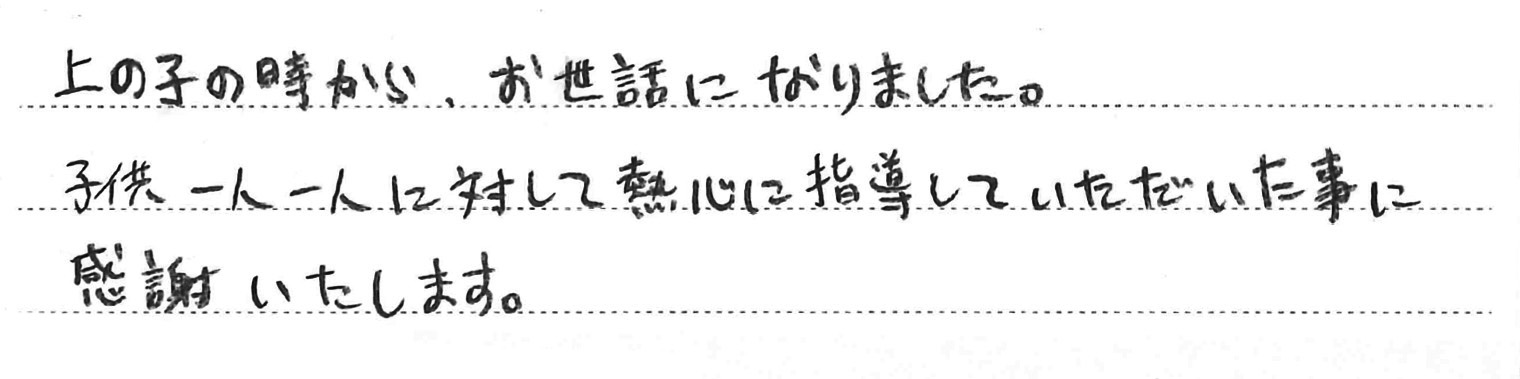 上の子の時から、お世話になりました。
子供一人一人に対して熱心に指導していただいた事に
感謝いたします。